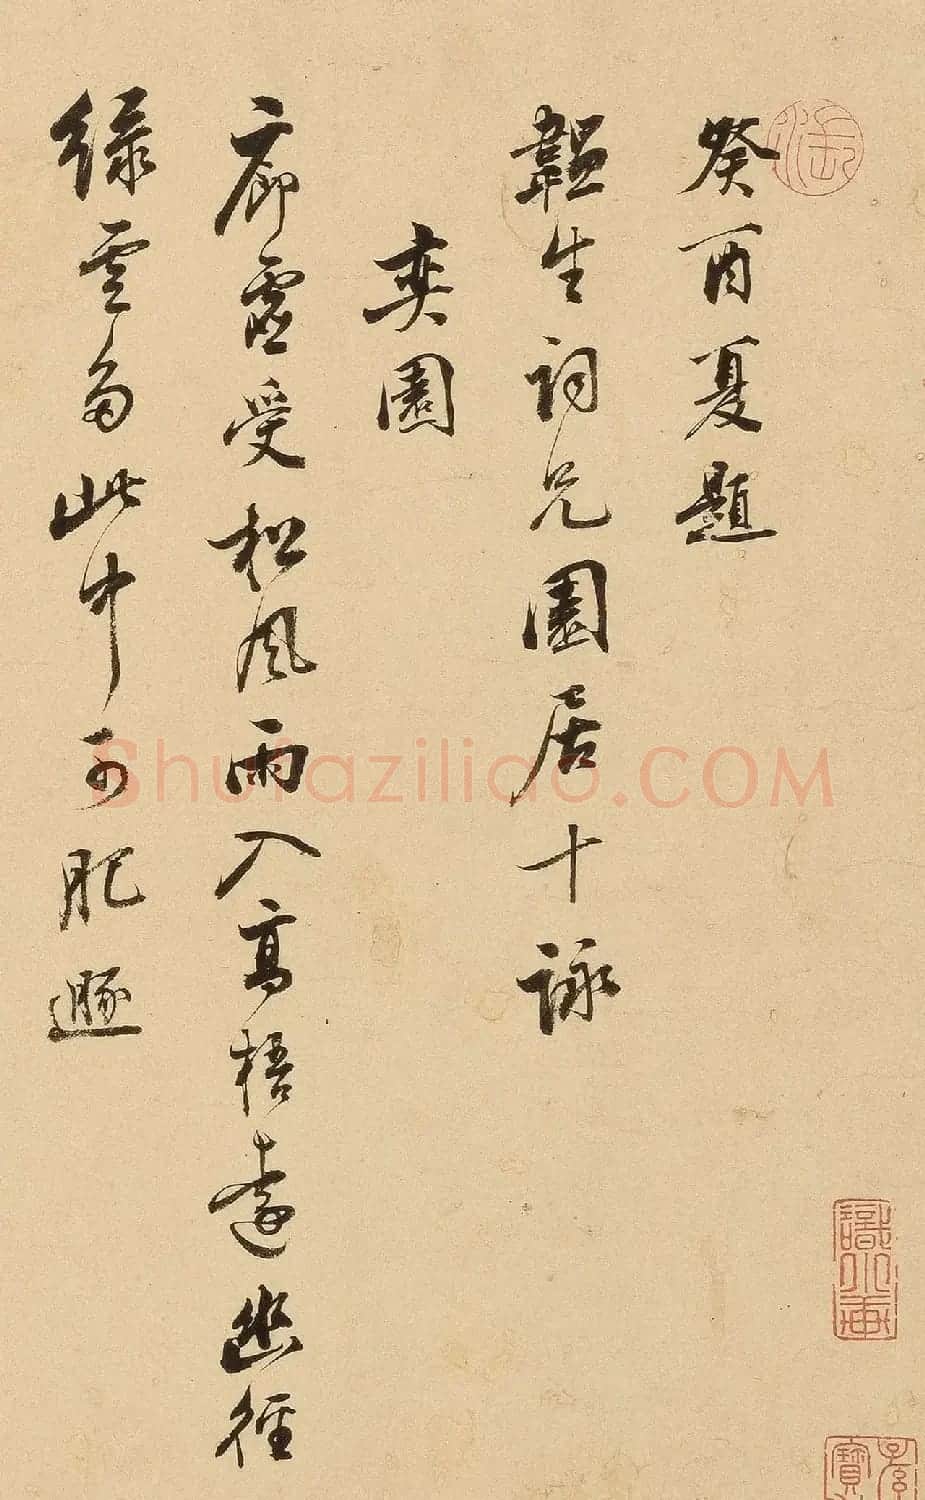 癸酉夏題
韞生詞兄園居十詠
奕園
廊虛受松風雨入高梧遠幽徑
綠雲多此中可肥遯
Shufaziliao.COM